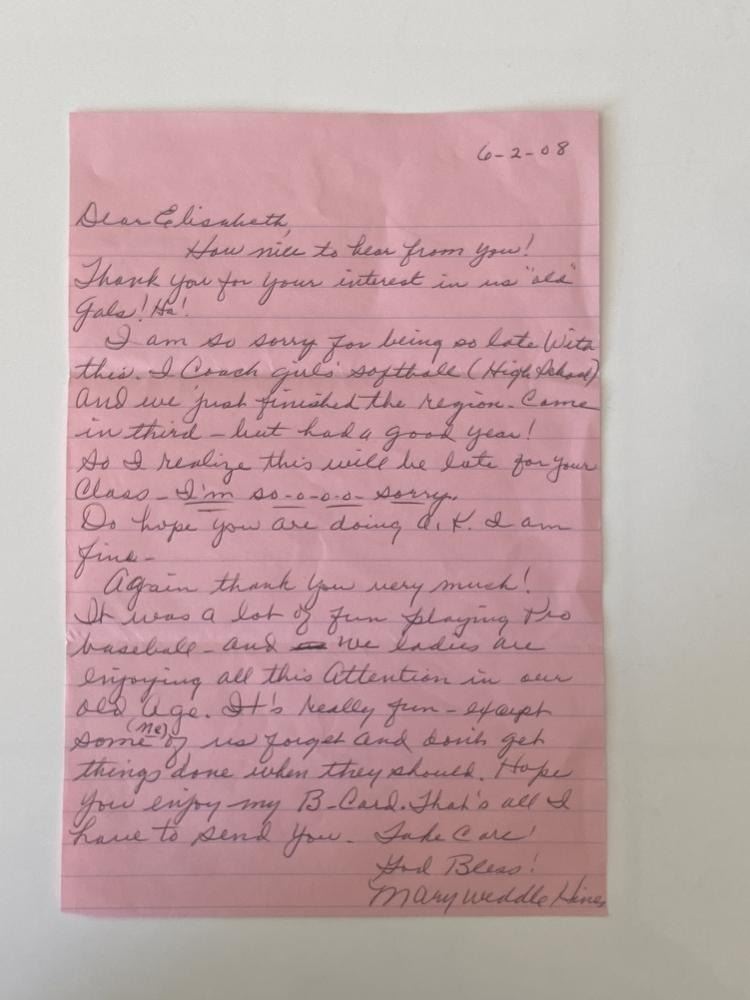 6-2-08
Dear Elisabeth,
How nice to hear from you!
Thank you for your interest in us "old"
Gals! Ha!
I am so sorry for being so late With
this. I Coach girls softball (High School)
And we just finished the region - Came
in third - but had a good year!
So I realize this will be late for your
Class - I'm so-o-o-o- sorry.
Do hope you are doing O.K. I am
fine -
Again thank you very much!
It was a lot of fun playing Pro
baseball - and we ladies are
enjoying all this Attention in our
old Age. It's really fun - except
some (Me) of us forget and don't get
things done when they should. Hope
you enjoy my B-Card. That's all I
have to send you. Take Care!
God Bless!
Mary Weddle Hines